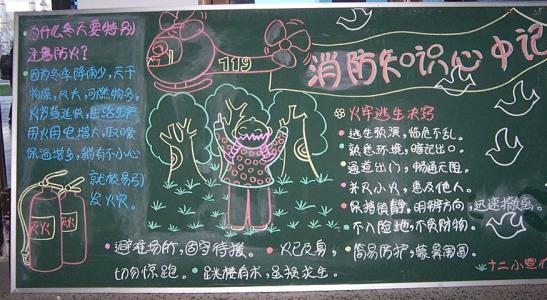 为什么冬天要特别
注意防火?
因为冬季降雨少,天干
物燥,风大,可燃物多,
火势蔓延快,生活生产
用火用电增大,取暖
保温增多,稍有不小心
就容易引
发火灾。
灭火
灭火
119
消防知识心中记
火牢逃生决窍
逃生预演,临危不乱。
熟悉环境,暗记出口。
通道出门,畅通无阻。
扑灭小火,惠及他人。
保持镇静,明辨方向,迅速撤离。
不入险地,不贪财物。
简易防护,蒙鼻匍匐。
避难场所,固守待援。
火已及身,
切勿惊跑。
跳楼有术,虽损求生。
十二小宣